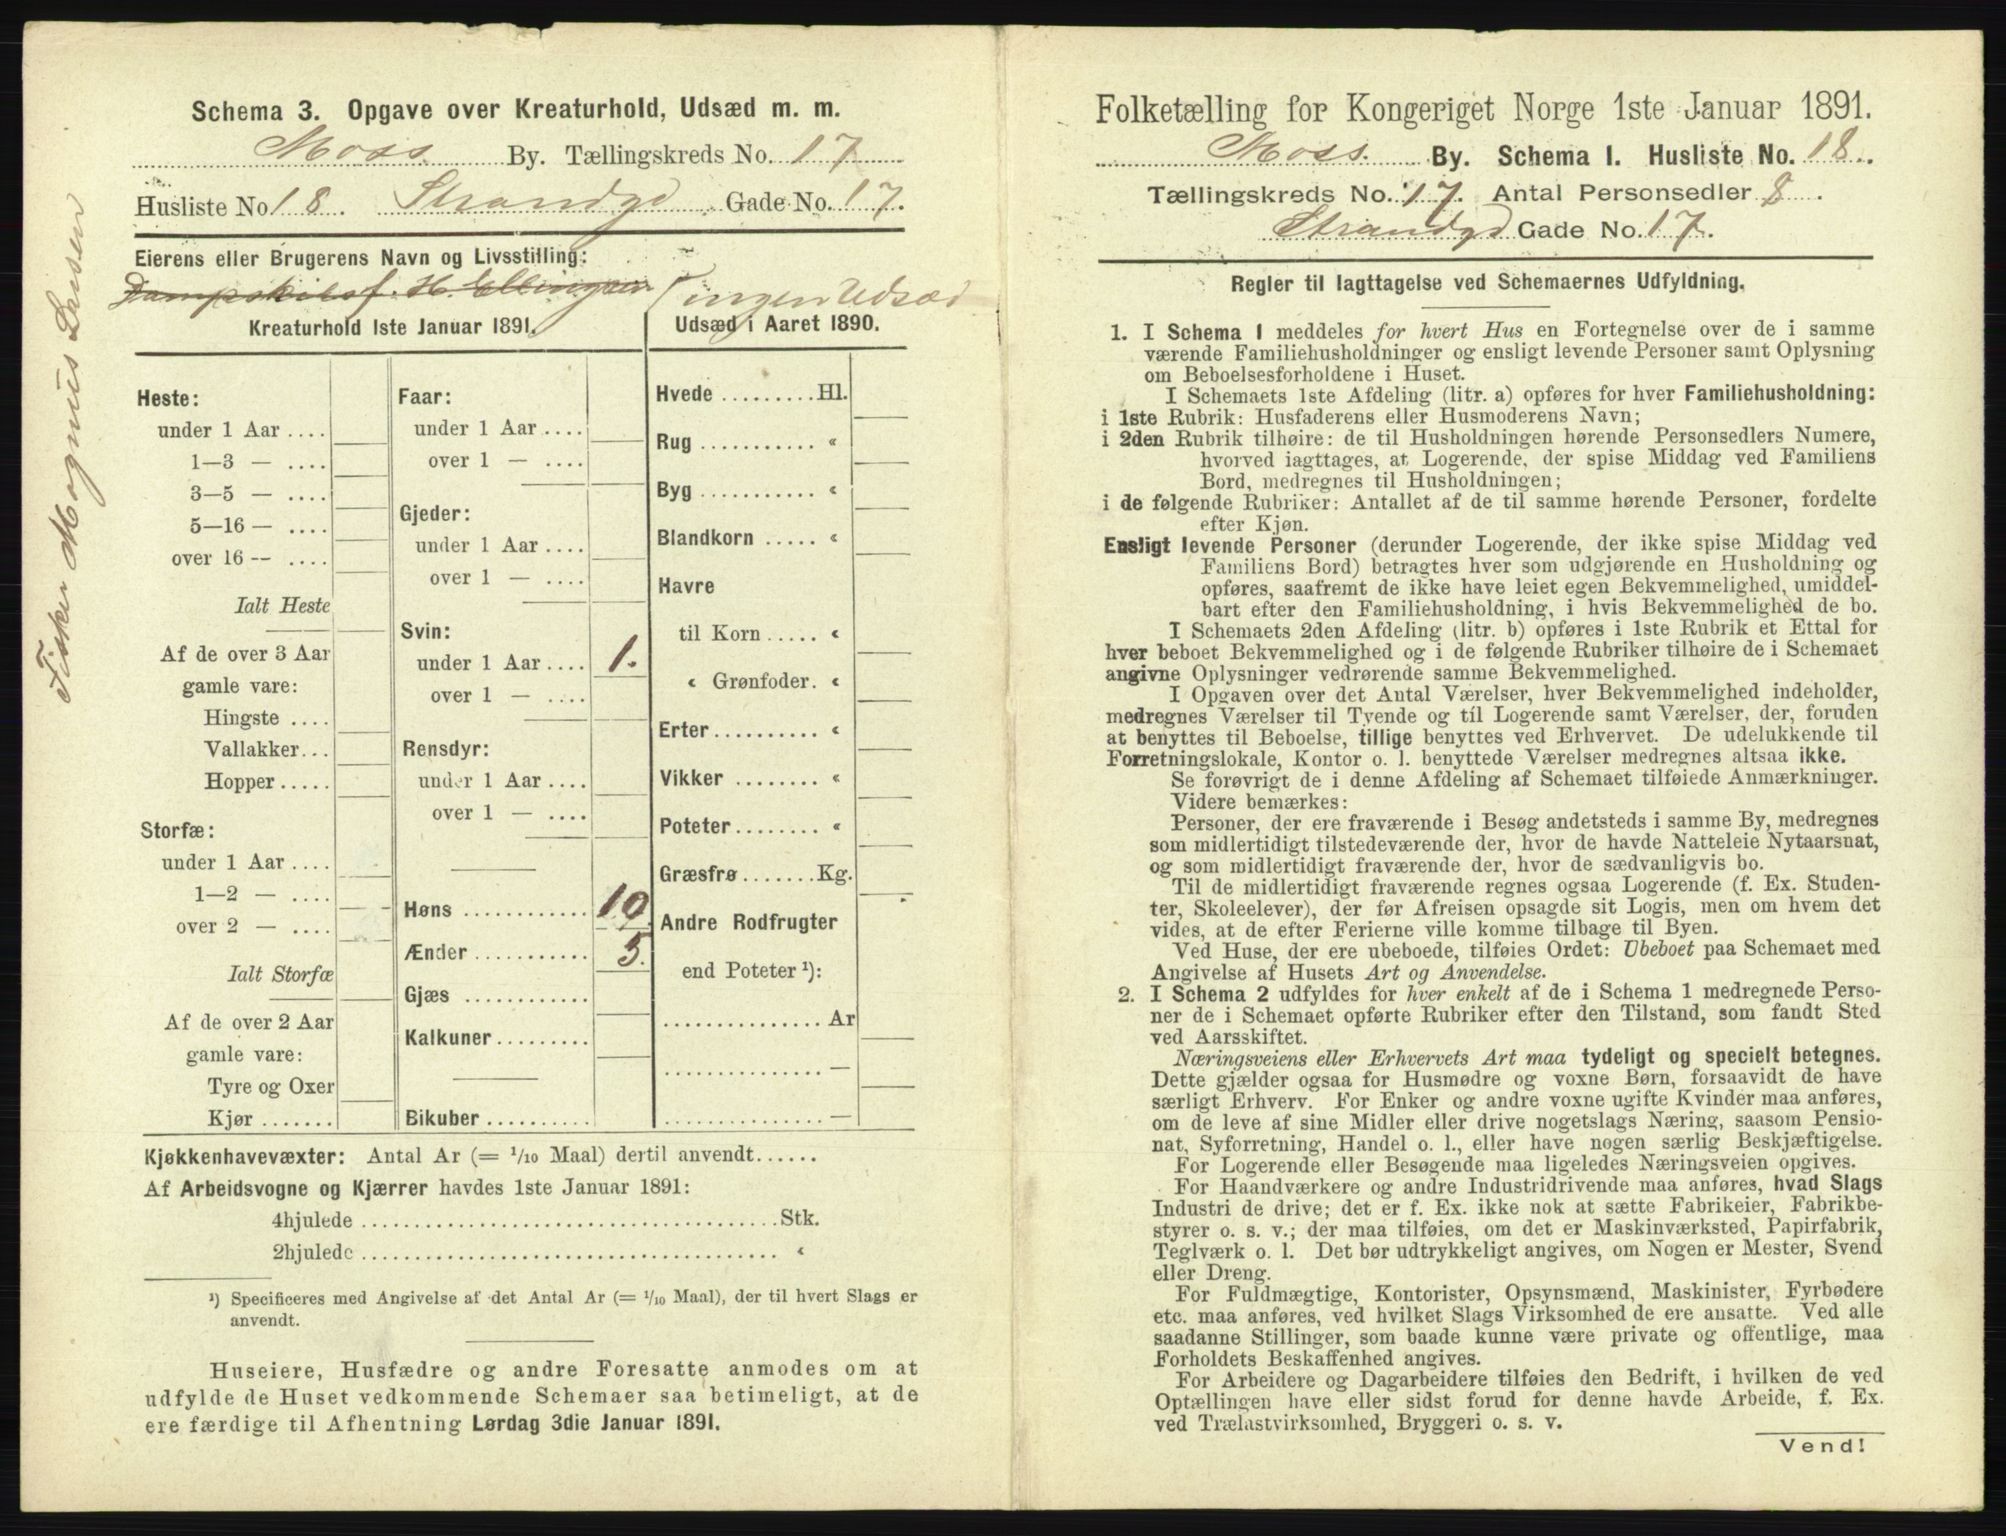 Schema 3. Opgave over Kreaturhold, Udsæd m. m.
Moss. By. Tællingskreds No. 17
Husliste No 18. Strandgd. Gade No. 17.
Eierens eller Brugerens Navn og Livsstilling:
Dampskibsf. H. Ellingsen ingen Udsæd
Fisker Magnus Larsen
Kreaturhold 1ste Januar 1891.
Heste:
under 1 Aar ....
1—3 — ....
3—5 — ....
5—16 — ....
over 16 -- ....
Ialt Heste
Af de over 3 Aar
gamle vare:
Hingste ....
Vallakker...
Hopper .....
Storfæ:
under 1 Aar ....
1—2 — ....
over 2 — ....
Ialt Storfæ
Af de over 2 Aar
gamle vare:
Tyre og Oxer
Kjør .......
Faar:
under 1 Aar ....
over 1 — ....
Gjeder:
under 1 Aar ....
over 1 — ....
Svin:
under 1 Aar .... 1.
over 1 — ....
Rensdyr:
under 1 Aar ....
over 1 — ....
Høns ............ 10
Ænder ........... 5.
Gjæs ............
Kalkuner.........
Bikuber ..........
Udsæd i Aaret 1890.
Hvede ......... Hl.
Rug ........... «
Byg ........... «
Blandkorn ..... «
Havre
til Korn ..... «
« Grønfoder. «
Erter.......... «
Vikker ........ «
Poteter........ «
Græsfrø ....... Kg.
Andre Rodfrugter
end Poteter ¹):
............... Ar
............... —
............... —
Kjøkkenhavevæxter: Antal Ar (= 1/10 Maal) dertil anvendt......
Af Arbeidsvogne og Kjærrer havdes 1ste Januar 1891:
4hjulede ........................................ Stk.
2hjulede ........................................ «
¹) Specificeres med Angivelse af det Antal Ar (= 1/10 Maal), der til hvert Slags er
anvendt.
Huseiere, Husfædre og andre Foresatte anmodes om at
udfylde de Huset vedkommende Schemaer saa betimeligt, at de
ere færdige til Afhentning Lørdag 3die Januar 1891.
Folketælling for Kongeriget Norge 1ste Januar 1891.
Moss. By. Schema 1. Husliste No. 18.
Tællingskreds No. 17. Antal Personsedler 8.
Strandgd Gade No. 17.
Regler til Iagttagelse ved Schemaernes Udfyldning.
1. I Schema 1 meddeles for hvert Hus en Fortegnelse over de i samme
værende Familiehusholdninger og ensligt levende Personer samt Oplysning
om Beboelsesforholdene i Huset.
I Schemaets 1ste Afdeling (litr. a) opføres for hver Familiehusholdning:
i 1ste Rubrik: Husfaderens eller Husmoderens Navn;
i 2den Rubrik tilhøire: de til Husholdningen hørende Personsedlers Numere,
hvorved iagttages, at Logerende, der spise Middag ved Familiens
Bord, medregnes til Husholdningen;
i de følgende Rubriker: Antallet af de til samme hørende Personer, fordelte
efter Kjøn.
Ensligt levende Personer (derunder Logerende, der ikke spise Middag ved
Familiens Bord) betragtes hver som udgjørende en Husholdning og
opføres, saafremt de ikke have leiet egen Bekvemmelighed, umiddel-
bart efter den Familiehusholdning, i hvis Bekvemmelighed de bo.
I Schemaets 2den Afdeling (litr. b) opføres i 1ste Rubrik et Ettal for
hver beboet Bekvemmelighed og i de følgende Rubriker tilhøire de i Schemaet
angivne Oplysninger vedrørende samme Bekvemmelighed.
I Opgaven over det Antal Værelser, hver Bekvemmelighed indeholder,
medregnes Værelser til Tyende og til Logerende samt Værelser, der, foruden
at benyttes til Beboelse, tillige benyttes ved Erhvervet. De udelukkende til
Forretningslokale, Kontor o. l. benyttede Værelser medregnes altsaa ikke.
Se forøvrigt de i denne Afdeling af Schemaet tilføiede Anmærkninger.
Videre bemærkes:
Personer, der ere fraværende i Besøg andetsteds i samme By, medregnes
som midlertidigt tilstedeværende der, hvor de havde Natteleie Nytaarsnat,
og som midlertidigt fraværende der, hvor de sædvanligvis bo.
Til de midlertidigt fraværende regnes ogsaa Logerende (f. Ex. Studen-
ter, Skoleelever), der før Afreisen opsagde sit Logis, men om hvem det
vides, at de efter Ferierne ville komme tilbage til Byen.
Ved Huse, der ere ubeboede, tilføies Ordet: Ubeboet paa Schemaet med
Angivelse af Husets Art og Anvendelse.
2. I Schema 2 udfyldes for hver enkelt af de i Schema 1 medregnede Perso-
ner de i Schemaet opførte Rubriker efter den Tilstand, som fandt Sted
ved Aarsskiftet.
Næringsveiens eller Erhvervets Art maa tydeligt og specielt betegnes.
Dette gjælder ogsaa for Husmødre og voxne Børn, forsaavidt de have
særligt Erhverv. For Enker og andre voxne ugifte Kvinder maa anføres,
om de leve af sine Midler eller drive nogetslags Næring, saasom Pensio-
nat, Syforretning, Handel o. l., eller have nogen særlig Beskjæftigelse.
For Logerende eller Besøgende maa ligeledes Næringsveien opgives.
For Haandværkere og andre Industridrivende maa anføres, hvad Slags
Industri de drive; det er f. Ex. ikke nok at sætte Fabrikeier, Fabrikbe-
styrer o. s. v.; der maa tilføies, om det er Maskinværksted, Papirfabrik,
Teglværk o. l. Det bør udtrykkeligt angives, om Nogen er Mester, Svend
eller Dreng.
For Fuldmægtige, Kontorister, Opsynsmænd, Maskinister, Fyrbødere
etc. maa anføres, ved hvilket Slags Virksomhed de ere ansatte. Ved alle
saadanne Stillinger, som baade kunne være private og offentlige, maa
Forholdets Beskaffenhed angives.
For Arbeidere og Dagarbeidere tilføies den Bedrift, i hvilken de ved
Optællingen have eller sidst forud for denne havde Arbeide, f. Ex.
ved Trælastvirksomhed, Bryggeri o. s. v.
Vend!